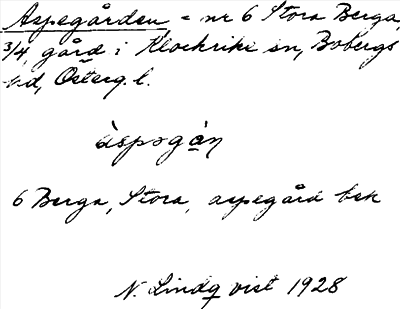 Aspegården = nr 6 Stora Berga,
3/4, gård i Klockrike sn, Bobergs
hd, Österg. l.
àspəgàn
6 Berga, Stora, aspegård bek
N. Lindqvist 1928